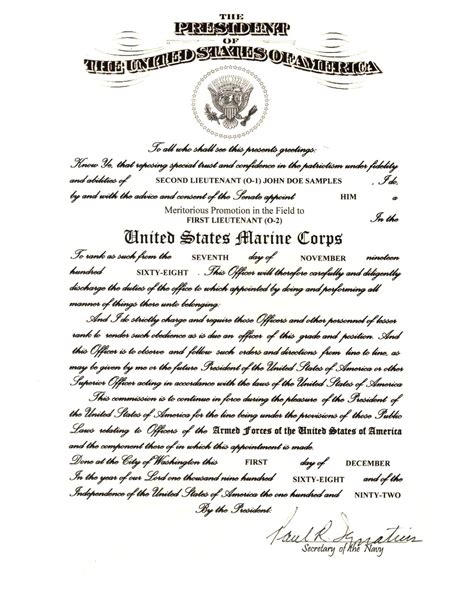 THE
PRESIDENT
OF
THE UNITED STATES OF AMERICA
To all who shall see this presents greetings:
Know Ye, that reposing special trust and confidence in the patriotism under fidelity
and abilities of SECOND LIEUTENANT (O-1) JOHN DOE SAMPLES , I do,
by and with the advice and consent of the Senate appoint HIM a
Meritorious Promotion in the Field to
FIRST LIEUTENANT (O-2) In the
United States Marine Corps
To rank as such from the SEVENTH day of NOVEMBER nineteen
hundred SIXTY-EIGHT . This Officer will therefore carefully and diligently
discharge the duties of the office to which appointed by doing and performing all
manner of things there unto belonging.
And I do strictly charge and require those Officers and other personnel of lesser
rank to render such obedience as is due an officer of this grade and position. And
this Officer is to observe and follow such orders and directions from line to line, as
may be given by me or the future President of the United States of America or other
Superior Officer acting in accordance with the laws of the United States of America
This commission is to continue in force during the pleasure of the President of
the United States of America for the line being under the provisions of those Public
Laws relating to Officers of the Armed Forces of the United States of America
and the component there of in which this appointment is made.
Done at the City of Washington this FIRST day of DECEMBER
In the year of our Lord one thousand nine hundred SIXTY-EIGHT and of the
Independence of the United States of America the one hundred and NINETY-TWO
By the President:
Paul R. Ignatius
Secretary of the Navy